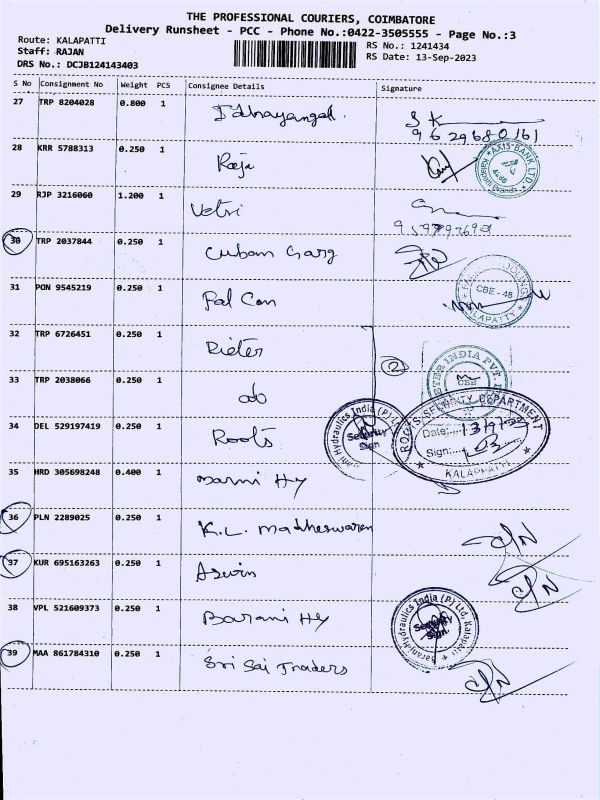 THE PROFESSIONAL COURIERS, COIMBATORE
Delivery Runsheet - PCC - Phone No.:0422-3505555 - Page No.:3
Route: KALAPATTI
Staff: RAJAN
DRS No.: DCJB124143403
RS No.: 1241434
RS Date: 13-Sep-2023
S No Consignment No Weight PCS Consignee Details Signature
27 TRP 8204028 0.800 1 SK
9629680161
28 KRR 5788313 0.250 1 Raja
AXIS BANK LTD.
29 RJP 3216060 1.200 1 Vetri
30 TRP 2037844 0.250 1 Cubam Garg
31 PON 9545219 0.250 1 Pal Can
CBE - 48
KALAPATTY
32 TRP 6726451 0.250 1 Rieter
2
INDIA PVT.
CBE
33 TRP 2038066 0.250 1 do
34 DEL 529197419 0.250 1 Roots
Hydraulics India (P) Ltd
Security
Sign
ROOTS SECURITY DEPARTMENT
Date: 13/9/23
Sign:
KALAPATTI
35 HRD 305698248 0.400 1 Hy
36 PLN 2289025 0.250 1 K.L. Madheswaran
37 KUR 695163263 0.250 1 Aswin
38 VPL 521609373 0.250 1 Barani Hy
Barani Hydraulics India (P) Ltd, Kalapatti
Security
Sign
39 MAA 861784310 0.250 1 Sri Sai Traders